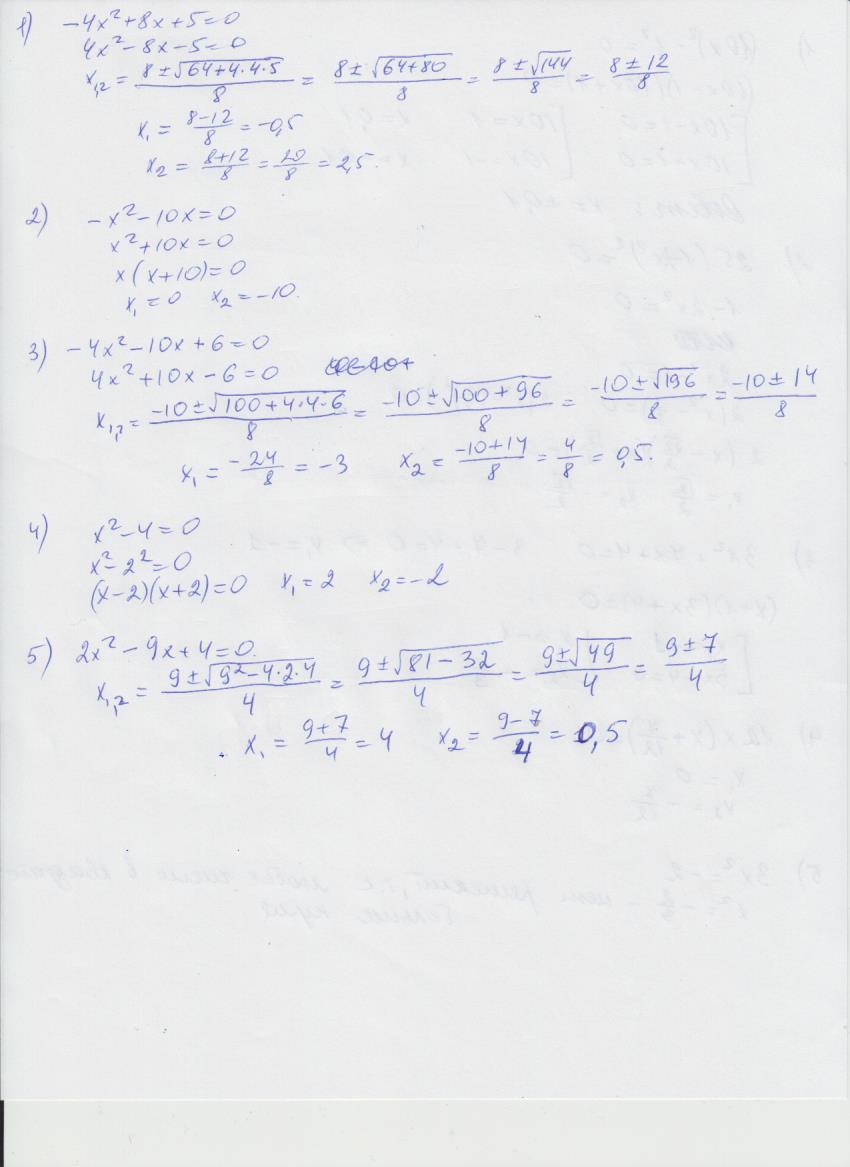 1) -4x²+8x+5=0
4x²-8x-5=0
x₁,₂ = (8±√(64+4·4·5))/8 = (8±√(64+80))/8 = (8±√144)/8 = (8±12)/8
x₁ = (8-12)/8 = -0,5
x₂ = (8+12)/8 = 20/8 = 2,5.
2) -x²-10x=0
x²+10x=0
x(x+10)=0
x₁=0 x₂=-10.
3) -4x²-10x+6=0
4x²+10x-6=0
x₁,₂ = (-10±√(100+4·4·6))/8 = (-10±√(100+96))/8 = (-10±√196)/8 = (-10±14)/8
x₁ = -24/8 = -3 x₂ = (-10+14)/8 = 4/8 = 0,5.
4) x²-4=0
x²-2²=0
(x-2)(x+2)=0 x₁=2 x₂=-2
5) 2x²-9x+4=0.
x₁,₂ = (9±√(9²-4·2·4))/4 = (9±√(81-32))/4 = (9±√49)/4 = (9±7)/4
x₁ = (9+7)/4 = 4 x₂ = (9-7)/4 = 0,5